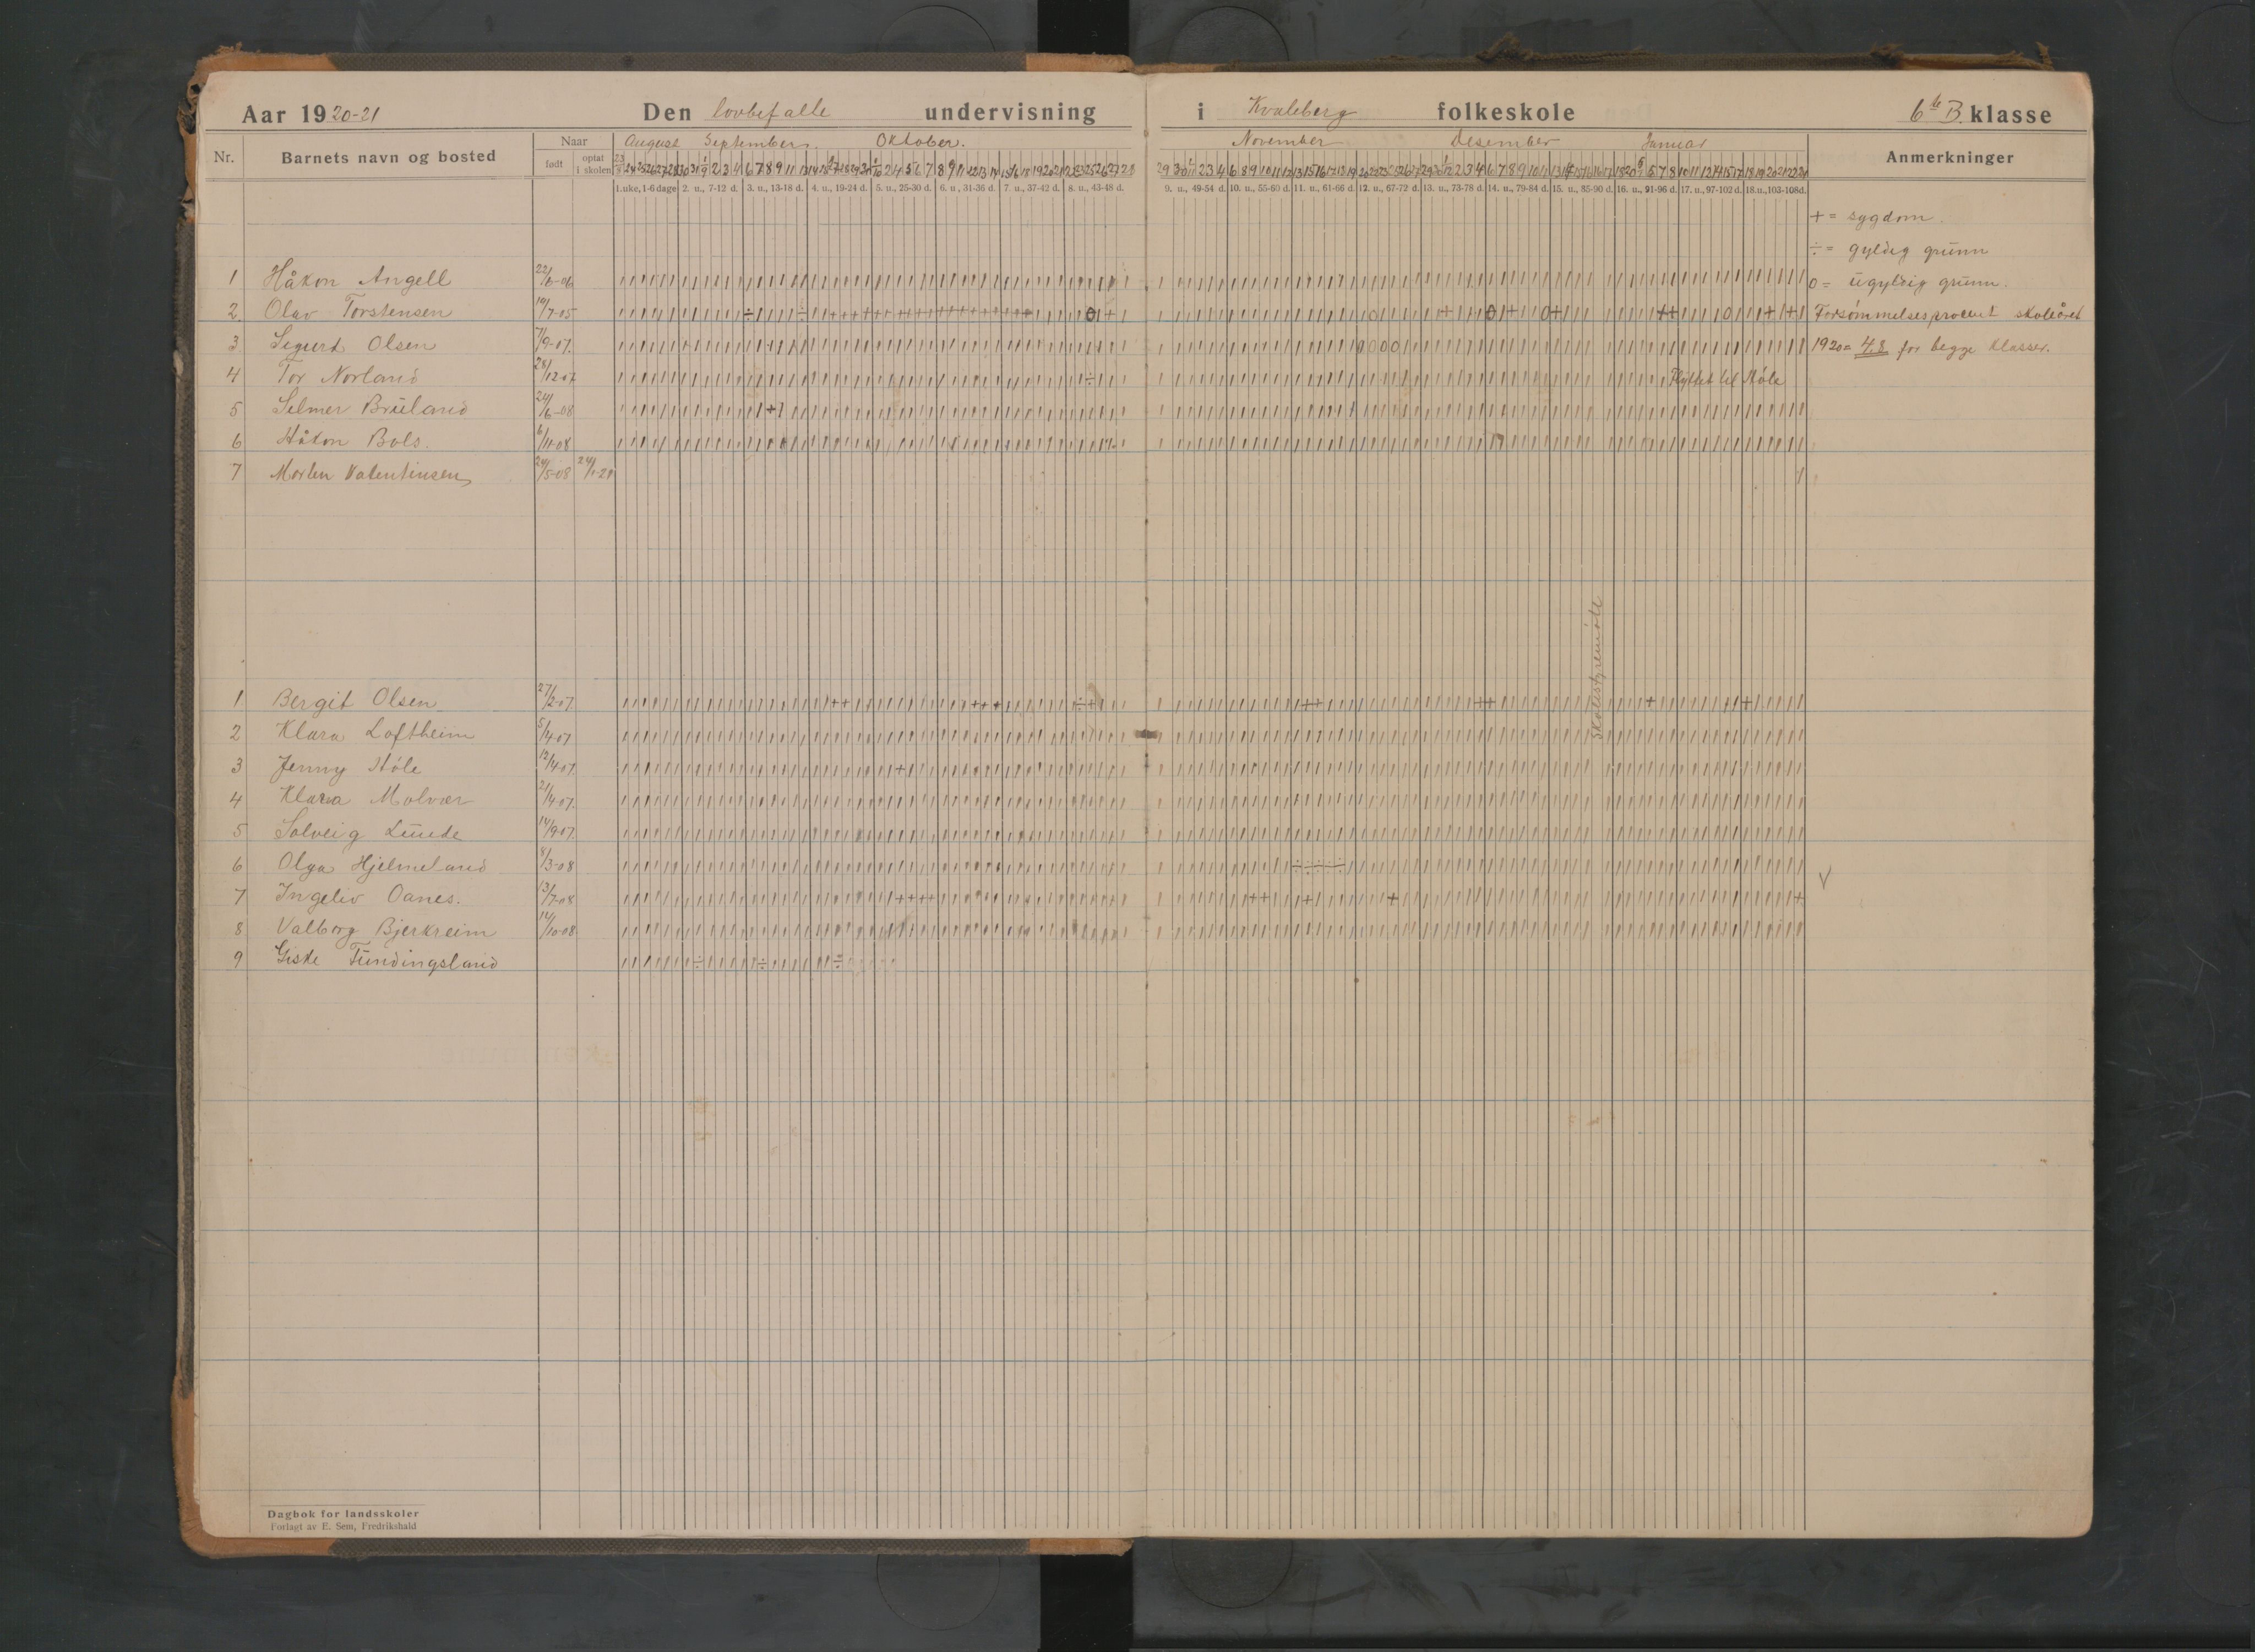 Aar 1920-21 Den lovbefalte undervisning i Kvaleberg folkeskole 6te B. klasse
Nr. Barnets navn og bosted Naar født optat i skolen August September Oktober. November Desember Januar Anmerkninger
1.uke, 1-6 dage 2. u., 7-12 d. 3. u., 13-18 d. 4. u., 19-24 d. 5. u., 25-30 d. 6. u., 31-36 d. 7. u., 37-42 d. 8. u., 43-48 d. 9. u., 49-54 d. 10. u., 55-60 d. 11. u., 61-66 d. 12. u., 67-72 d. 13. u., 73-78 d. 14. u., 79-84 d. 15. u., 85-90 d. 16. u., 91-96 d. 17. u., 97-102 d. 18. u., 103-108 d.
+ = sygdom.
÷ = gyldig grunn
1 Håkon Angell 22/6-06 o = ugyldig grunn.
2. Olav Torstensen 19/7-05 Forsømmelsesprocent skoleåret
3 Sigurd Olsen 7/9-07. 1920= 4.8 for begge klasser.
4 Tor Norland 28/12-07 Flyttet til Høle
5 Selmer Bruland 24/6-08
6 Håkon Bols. 6/11-08
7 Morten Valentinsen 24/5-08 24/1-21
Skolestyremøte
1 Bergit Olsen 27/2-07.
2 Klara Loftheim 5/4-07
3 Jenny Høle 12/4-07.
4 Klara Molvær 21/4-07.
5 Solveig Lunde 14/9-07.
6 Olga Hjelmeland 8/3-08
7 Ingeliv Oanes. 13/7-08
8 Valborg Bjerkreim 14/10-08
9 Giske Tundingsland
Dagbok for landsskoler
Forlagt av E. Sem, Fredrikshald